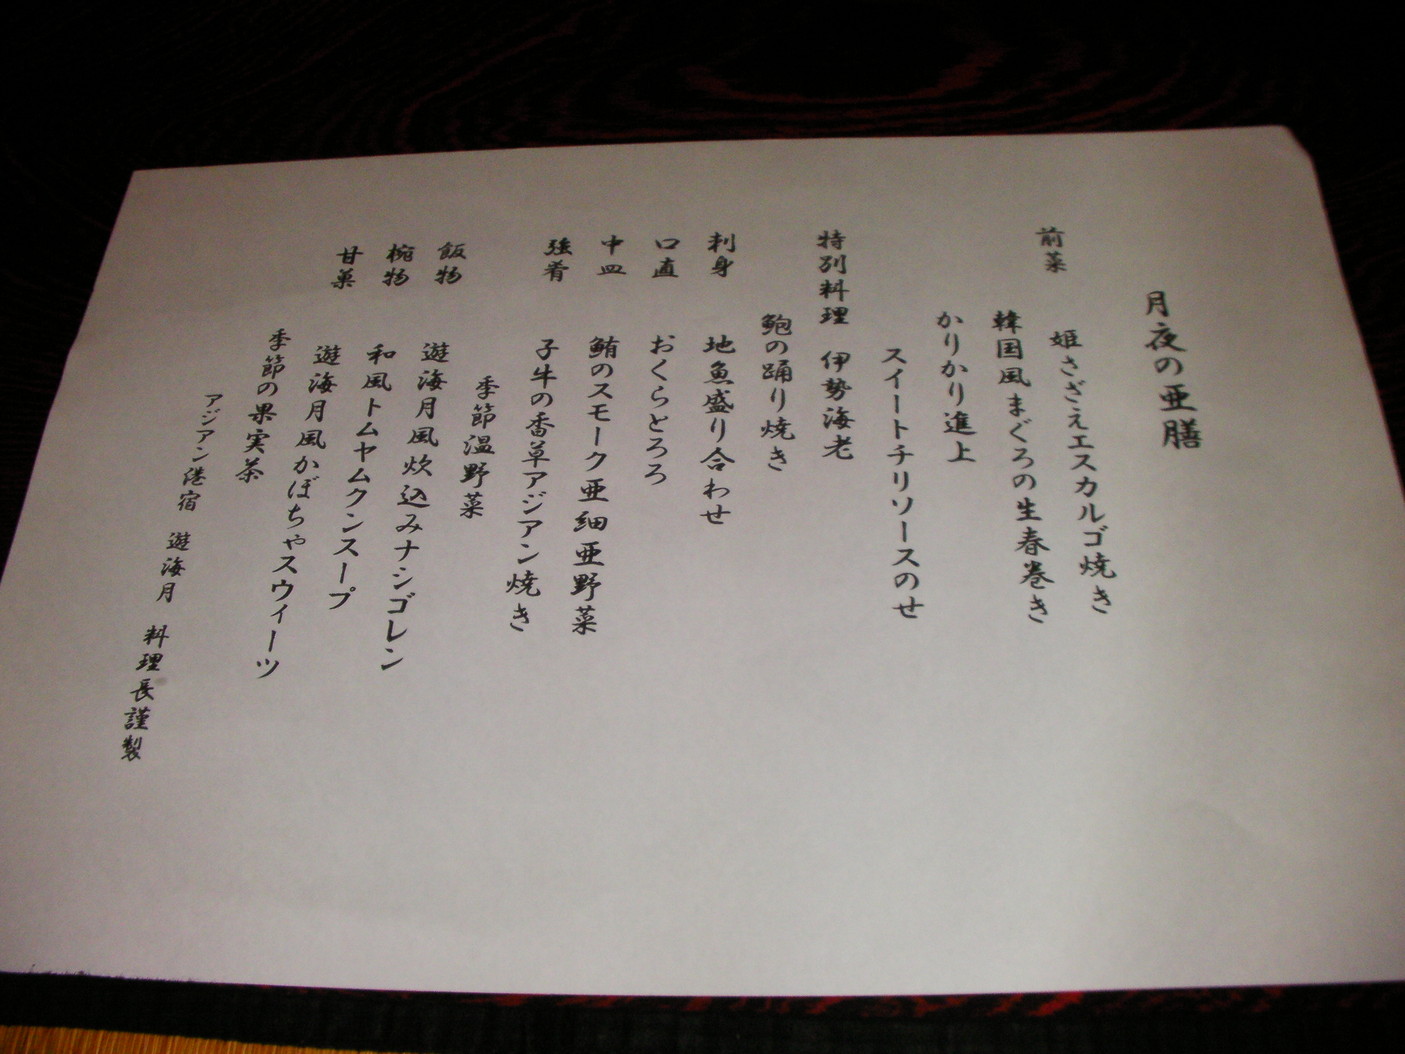 月夜の亜膳
前菜
姫さざえエスカルゴ焼き
韓国風まぐろの生春巻き
かりかり進上
スイートチリソースのせ
特別料理 伊勢海老
鮑の踊り焼き
刺身 地魚盛り合わせ
口直 おくらとろろ
中皿 鮪のスモーク亜細亜野菜
強肴 子牛の香草アジアン焼き
季節温野菜
飯物 遊海月風炊込みナシゴレン
椀物 和風トムヤムクンスープ
甘菓 遊海月風かぼちゃスウィーツ
季節の果実茶
アジアン港宿 遊海月 料理長謹製